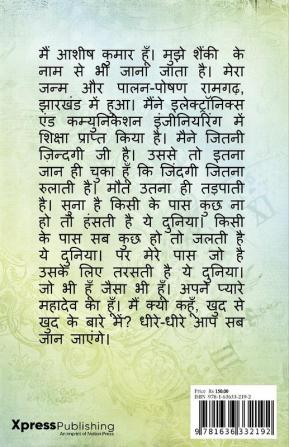 मैं आशीष कुमार हूँ। मुझे शैंकी के
नाम से भी जाना जाता है। मेरा
जन्म और पालन-पोषण रामगढ़,
झारखंड में हुआ। मैंने इलेक्ट्रॉनिक्स
एंड कम्युनिकेशन इंजीनियरिंग में
शिक्षा प्राप्त किया है। मैंने जितनी
ज़िन्दगी जी है। उससे तो इतना
जान ही चुका हूँ कि जिंदगी जितना
रुलाती है। मौत उतना ही तड़पाती
है। सुना है किसी के पास कुछ ना
हो तो हंसती है ये दुनिया। किसी
के पास सब कुछ हो तो जलती है
ये दुनिया। पर मेरे पास जो है
उसके लिए तरसती है ये दुनिया।
जो भी हूँ जैसा भी हूँ। अपने प्यारे
महादेव का हूँ। मैं क्या कहूँ, खुद से
खुद के बारे में? धीरे-धीरे आप सब
जान जाएंगे।
Price Rs 150.00
ISBN 978-1-63633-219-2
9 781636 332192
XpressPublishing
An imprint of Notion Press